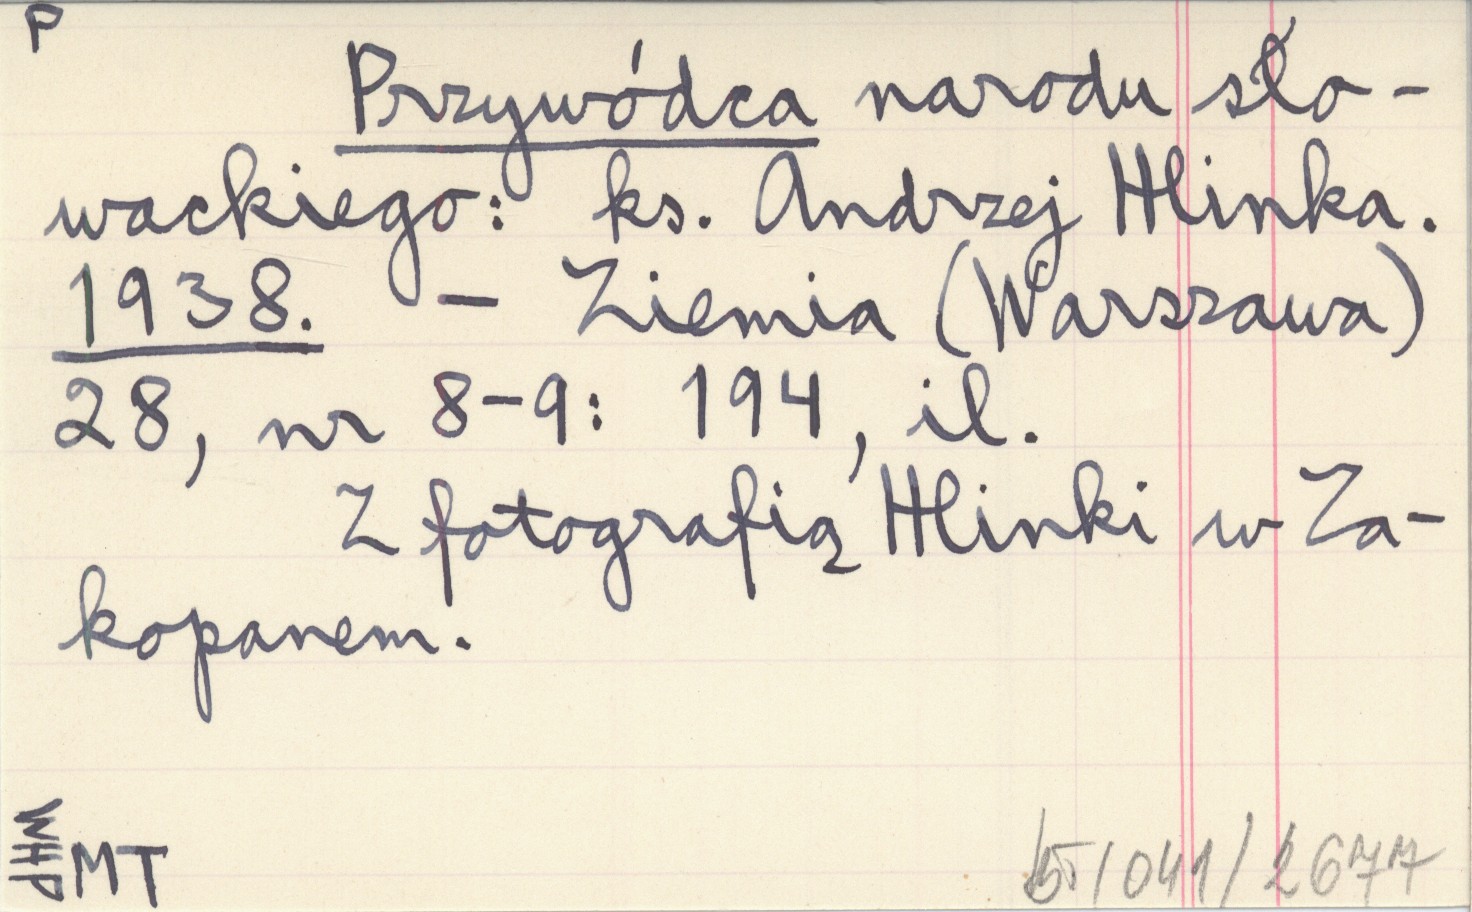 P
Przywódca narodu sło-
wackiego: ks. Andrzej Hlinka.
1938. — Ziemia (Warszawa)
28, nr 8-9: 194, il.
Z fotografią Hlinki w Za-
kopanem.
WHP
MT
/041/2677